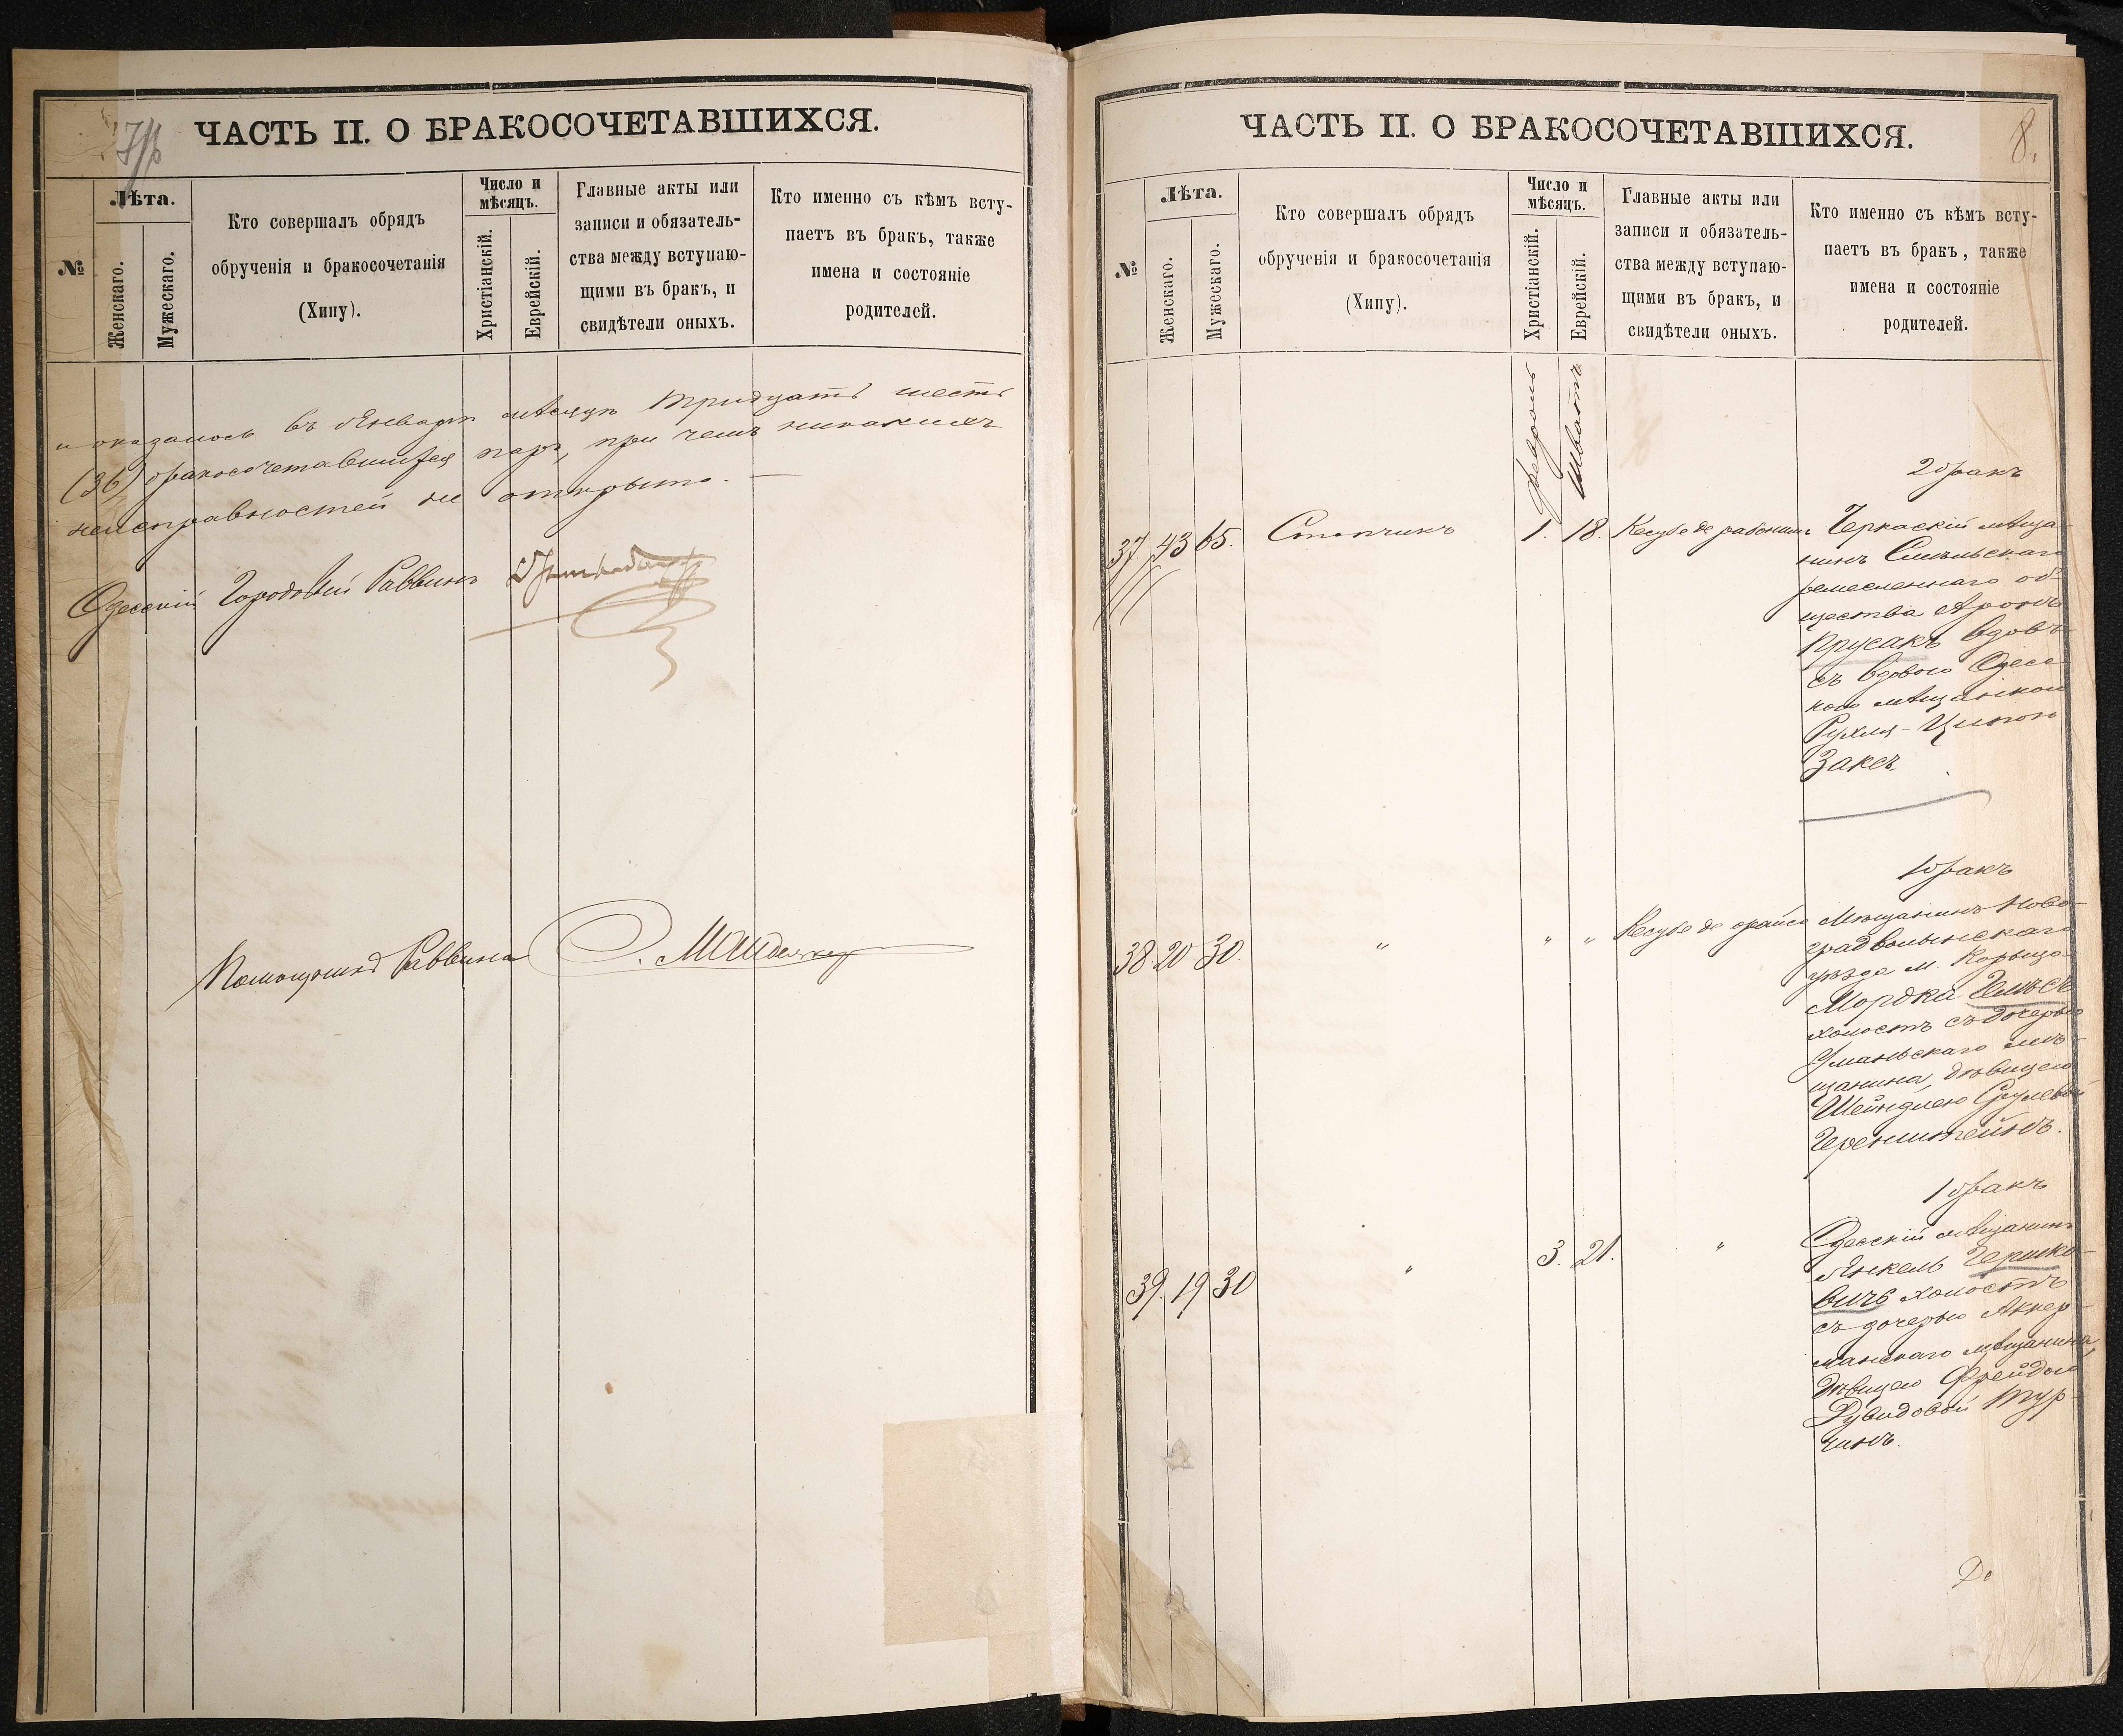 7
ЧАСТЬ II. О БРАКОСОЧЕТАВШИХСЯ.
№
Лѣта.
Женскаго.
Мужескаго.
Кто совершалъ обрядъ
обрученія и бракосочетанія
(Хипу).
Число и
мѣсяцъ.
Христіанскій.
Еврейскій.
Главные акты или
записи и обязатель-
ства между вступаю-
щими въ бракъ, и
свидѣтели оныхъ.
Кто именно съ кѣмъ всту-
паетъ въ бракъ, также
имена и состояніе
родителей.
и оказалось въ Январѣ мѣсяцѣ тридцать шесть
(36) бракосочетавшихся паръ, при чемъ никакихъ
неисправностей не открыто. —
Одесскій Городовой Раввинъ
Помощникъ Раввина
ЧАСТЬ II. О БРАКОСОЧЕТАВШИХСЯ.
8.
№
Лѣта.
Женскаго.
Мужескаго.
Кто совершалъ обрядъ
обрученія и бракосочетанія
(Хипу).
Число и
мѣсяцъ.
Христіанскій.
Еврейскій.
Главные акты или
записи и обязатель-
ства между вступаю-
щими въ бракъ, и
свидѣтели оныхъ.
Кто именно съ кѣмъ всту-
паетъ въ бракъ, также
имена и состояніе
родителей.
Февраль
Шватъ
2 бракъ
37. 43 65. Столчикъ 1. 18. Кесубе де рабонинъ Черкаскій мѣща-
нинъ Смѣльскаго
ремесленнаго об-
щества Аронъ
Прусакъ вдовъ
съ вдовою Одес-
кою мѣщанкою
Рухля-Ципою
Заксъ.
1 бракъ
38. 20 30. " " " Кесубе де орайсо Мѣщанинъ Ново-
градволынскаго
уѣзда м. Корыца
Мордка Гельсъ
холостъ съ дочерью
Уманьскаго мѣ-
щанина, дѣвицею
Шейндлею Срулевой
Беренштейнъ.
1 бракъ
39. 19 30 " 3. 21. " Одесскій мѣщанинъ
Янкель Гершко-
вичъ холостъ
съ дочерью Аккер-
манскаго мѣщанина,
дѣвицею Фрейдою
Дувидовой Тур-
чинъ.